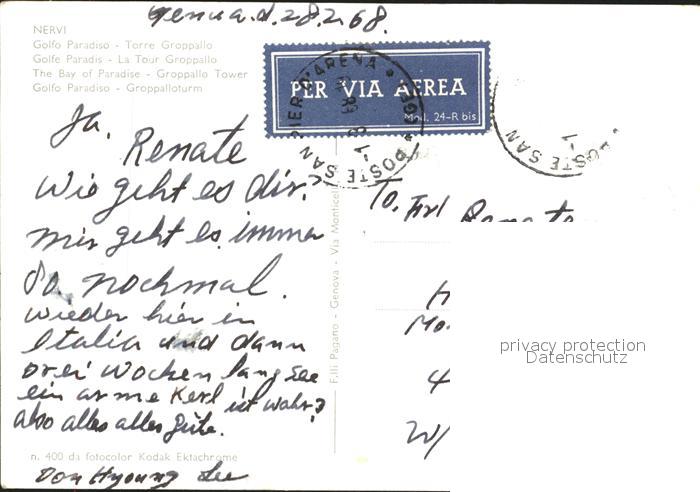 Genua.d.28.2.68.
NERVI
Golfo Paradiso - Torre Groppallo
Golfe Paradis - La Tour Groppallo
The Bay of Paradise - Groppallo Tower
Golfo Paradiso - Groppalloturm
PER VIA AEREA
Mod. 24-R bis
PIER D'ARENA
POSTE SAN
POSTE SAN
Ja, Renate
Wie geht es dir.
mir geht es immer
so, nochmal.
wieder hier in
Italia und dann
drei Wochen lang See
ein arme Kerl ist wahr?
also alles alles gute.
Don Hyoung Lee
n. 400 da fotocolor Kodak Ektachrome
F.lli Pagano - Genova - Via Monticel
To. Frl Renate
H
Mo.
4
W/
privacy protection
Datenschutz